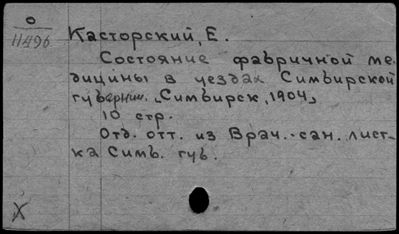 О
11496
Касторский, Е.
Состояние фабричной ме-
дицины в уездах Симбирской
губернии. „Симбирск, 1904„
10 стр.
Отд. отт. из Врач.-сан. лист-
ка Симб. губ.
X